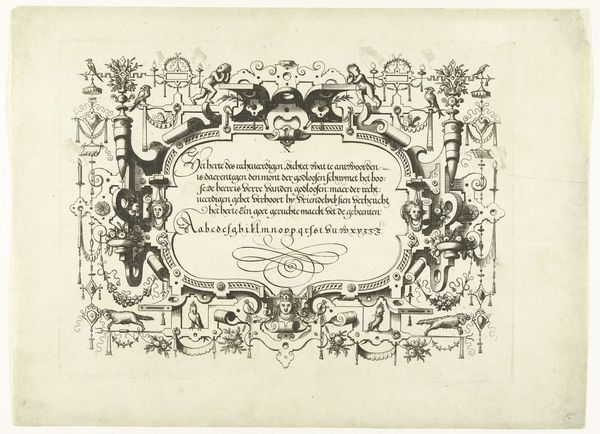 Het herte des rechtuerdigen, dichtet wat te antwoorden
is daerentegen den mont der godloosen schuymet het boo-
se. De heere is verre vanden godloosen: maer der recht-
uerdigen gebet verhoort hy. Vriendelyck sien verheucht
het herte: Een goet geruchte maeckt vet de gebeenten.
A a b c d e f g h i k l m n o p p q r ſ s t v u w x y z z